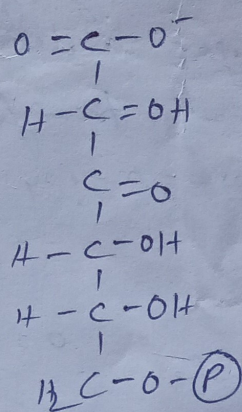 O=C-O⁻
H-C=OH
C=O
H-C-OH
H-C-OH
H₂C-O-P